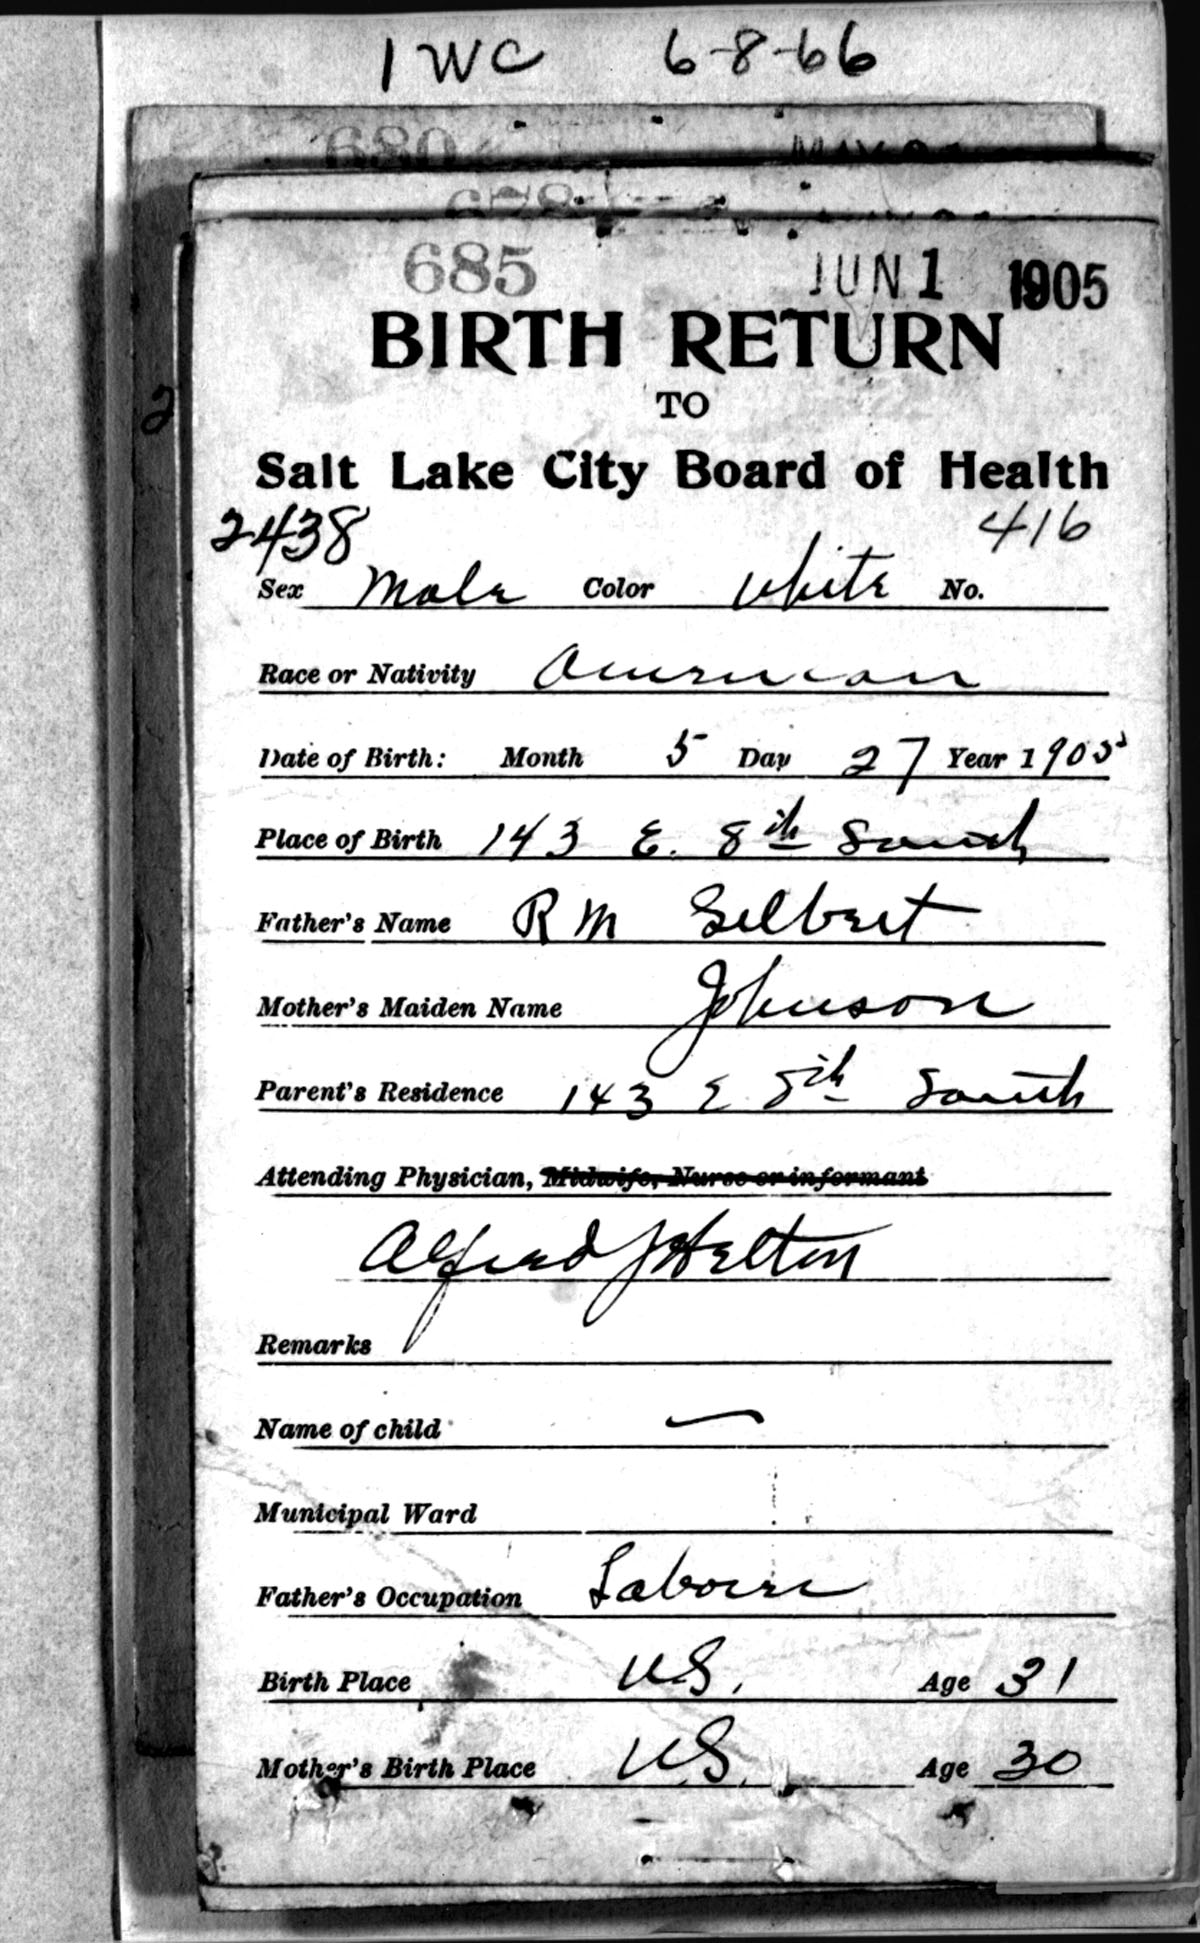 1 WC 6-8-66
680
678
685 JUN 1 1905
BIRTH RETURN
TO
Salt Lake City Board of Health
2438 416
Sex Male Color White No.
Race or Nativity American
Date of Birth: Month 5 Day 27 Year 1905
Place of Birth 143 E. 8th South
Father's Name R M Gilbert
Mother's Maiden Name Johnson
Parent's Residence 143 E 8th South
Attending Physician, Midwife, Nurse or informant
Alfred J Helton
Remarks
Name of child —
Municipal Ward
Father's Occupation Laborer
Birth Place U.S. Age 31
Mother's Birth Place U.S. Age 30